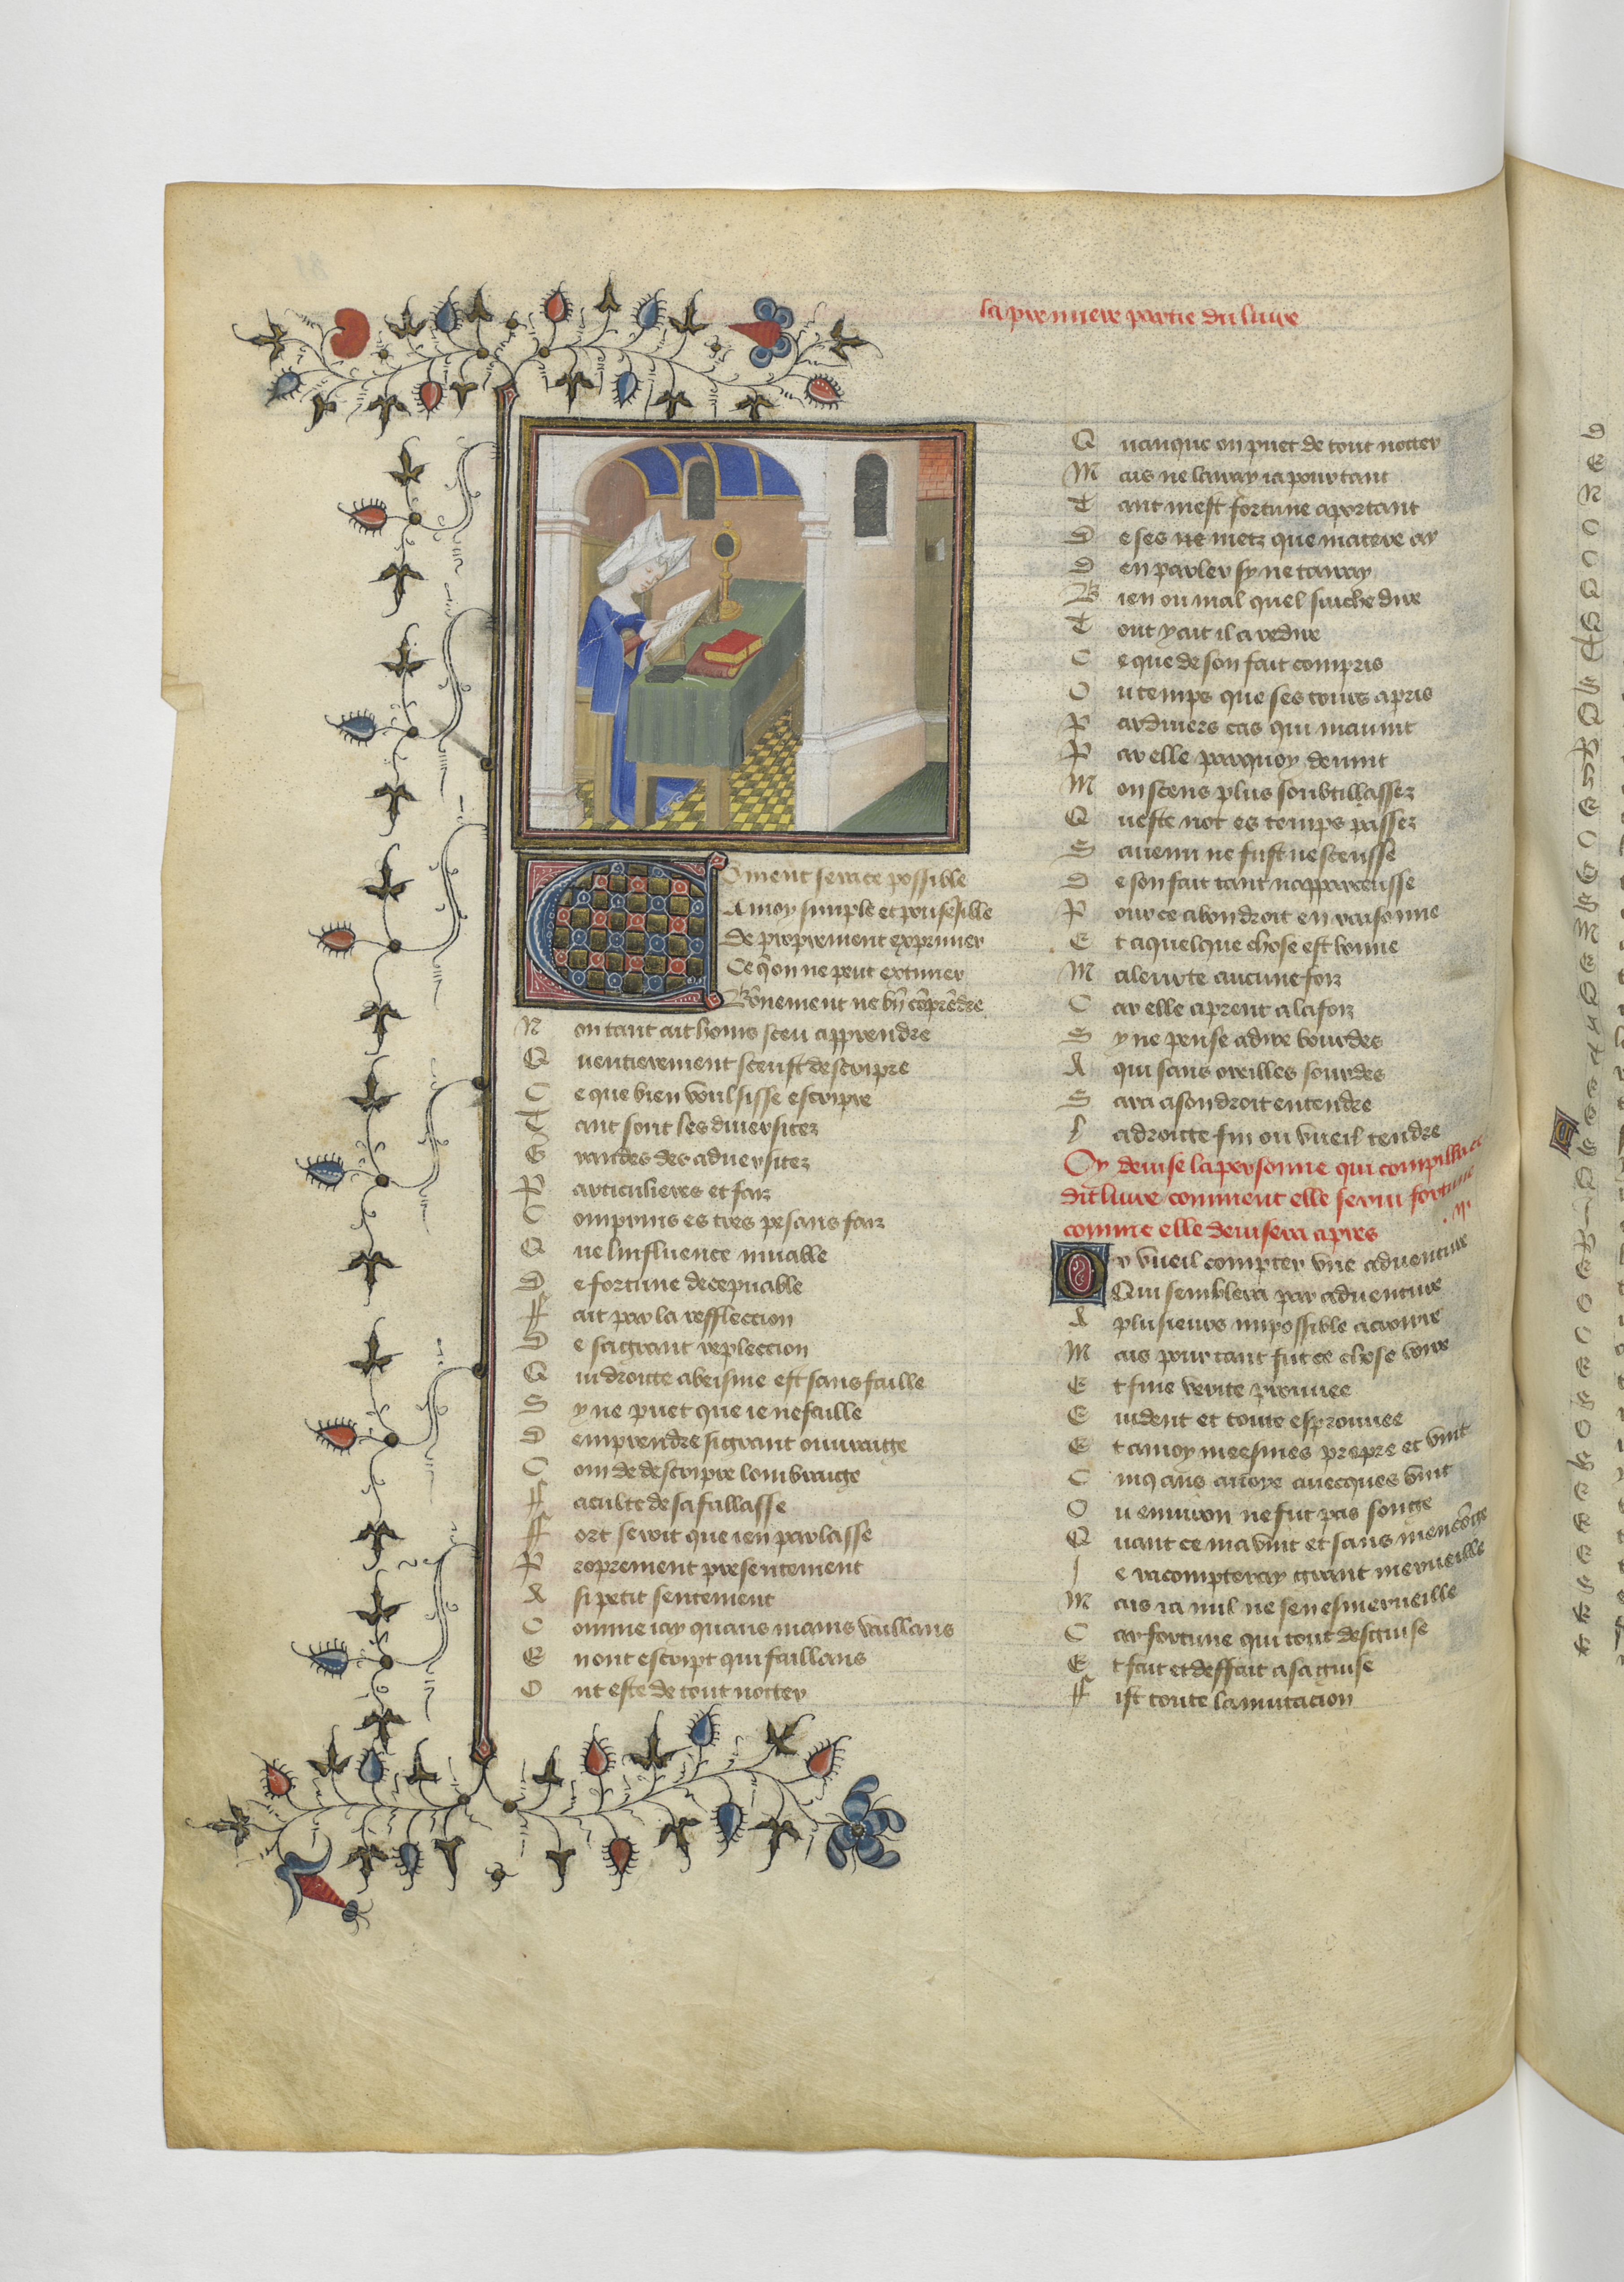 la premiere partie du livre
Coment seroit ce possible
A moy simple et pou sesible
De proprement exprimer
Ce q̃ on ne peut extimer
Bõnement ne bñ cõprẽdre
Non tant ait homs sceu apprendre
Quentierement sceust descripre
Ce que bien voulsisse escripre
Tant sont les diversitez
Grandes des adversitez
Particulieres et faiz
Comprins es tres pesans faiz
Que linfluence muable
De fortune decepvable
Fait par la refflection
De sa grant repleccion
Qui droitte abeisme est sans faille
Sy ne puet que ie ne faille
Demprendre si grant ouvraige
Com de descripre lombraige
Faculte de sa fallasse
Fort seroit que ien parlasse
Proprement presentement
A si petit sentement
Comme iay quans mains vaillans
En ont escript qui faillans
Ont este de tout notter
Quanque on puet de tout notter
Mais ne lairay ia pour tant
Tant mest fortune aportant
De ses ne metz que matere ay
Den parler sy ne tairay
Bien ou mal quel saiche dire
Tout y ait il a redire
Ce que de son fait compris
Ou temps que ses tours apris
Par divers cas qui mavint
Par elle parquoy devint
Mon scens plus soubtil assez
Queste not es temps passez
Savenu ne fust ne sceusse
De son fait tant napparceusse
Pour ce a bon droit en raisonne
Et a quelque chose est bonne
Maleurte aucune foiz
Car elle aprent a la foiz
Sy ne pense a dire bourdes
A qui sans oreilles sourdes
Sara a son droit entendre
La droitte fin ou vueil tendre
Cy devise la personne qui compilla ce
dit livre comment elle servi fortune
comme elle devisera apres .ijᵉ
Or vueil compter une adventure
Qui semblera par adventure
A plusieurs impossible a croire
Mais pour tant fut ce chose voire
Et fine verite prouvee
Evident et toute esprouvee
Et a moy meesmes propre et vint
Cinq ans ancore avecques vint
Ou environ ne fut pas songe
Quant ce mavint et sans mencõge
Ie racompteray grant merveille
Mais ia nul ne sen esmerveille
Car fortune qui tout desguise
Et fait et deffait a sa guise
Fist toute la mutacion